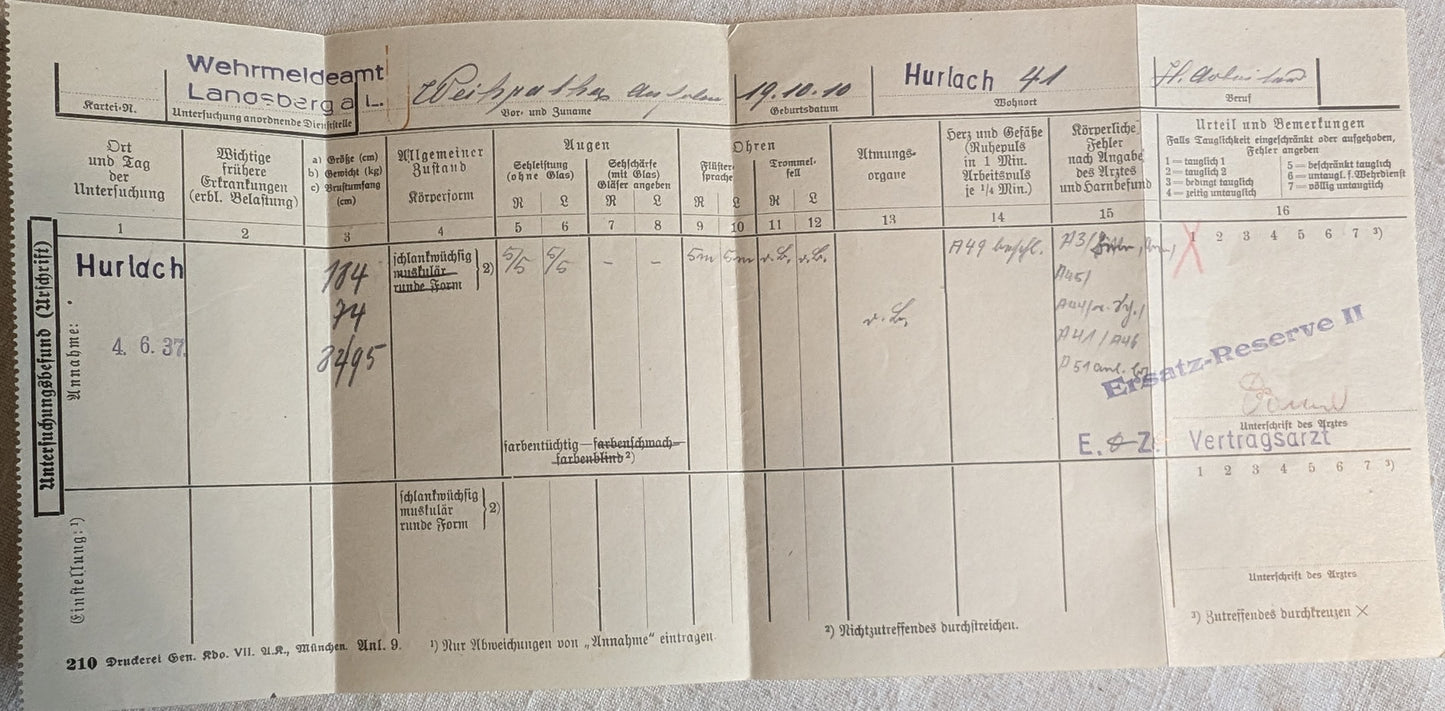 Wehrmeldeamt
Landsberg a L.
Kartei-N.
Untersuchung anordnende Dienststelle
Vor- und Zuname
19.10.10
Geburtsdatum
Hurlach 41
Wohnort
Beruf
Untersuchungsbefund (Urschrift)
Ort und Tag der Untersuchung
Wichtige frühere Erkrankungen (erbl. Belastung)
a) Größe (cm)
b) Gewicht (kg)
c) Brustumfang (cm)
Allgemeiner Zustand
Körperform
Augen
Sehleistung (ohne Glas)
Sehschärfe (mit Glas) Gläser angeben
Ohren
Flüstersprache
Trommelfell
R L R L R L R L
Atmungsorgane
Herz und Gefäße (Ruhepuls in 1 Min. Arbeitspuls je 1/4 Min.)
Körperliche Fehler nach Angabe des Arztes und Harnbefund
Urteil und Bemerkungen
Falls Tauglichkeit eingeschränkt oder aufgehoben, Fehler angeben
1 = tauglich 1
2 = tauglich 2
3 = bedingt tauglich
4 = zeitig untauglich
5 = beschränkt tauglich
6 = untaugl. f. Wehrdienst
7 = völlig untauglich
1 2 3 4 5 6 7 8 9 10 11 12 13 14 15 16
Annahme:
Hurlach
4. 6. 37.
184
74
82/95
schlankwüchsig
muskulär
runde Form
2)
5/5 5/5 - - 5m 5m
A49
A45/
A41/A46
farbentüchtig — farbenschwach —
farbenblind 2)
1 2 3 4 5 6 7 3)
Ersatz-Reserve II
Unterschrift des Arztes
E. Z. Vertragsarzt
Einstellung: 1)
schlankwüchsig
muskulär
runde Form
2)
1 2 3 4 5 6 7 3)
Unterschrift des Arztes
210 Druckerei Gen. Kdo. VII. A.K., München. Anl. 9.
1) Nur Abweichungen von „Annahme" eintragen.
2) Nichtzutreffendes durchstreichen.
3) Zutreffendes durchkreuzen ×